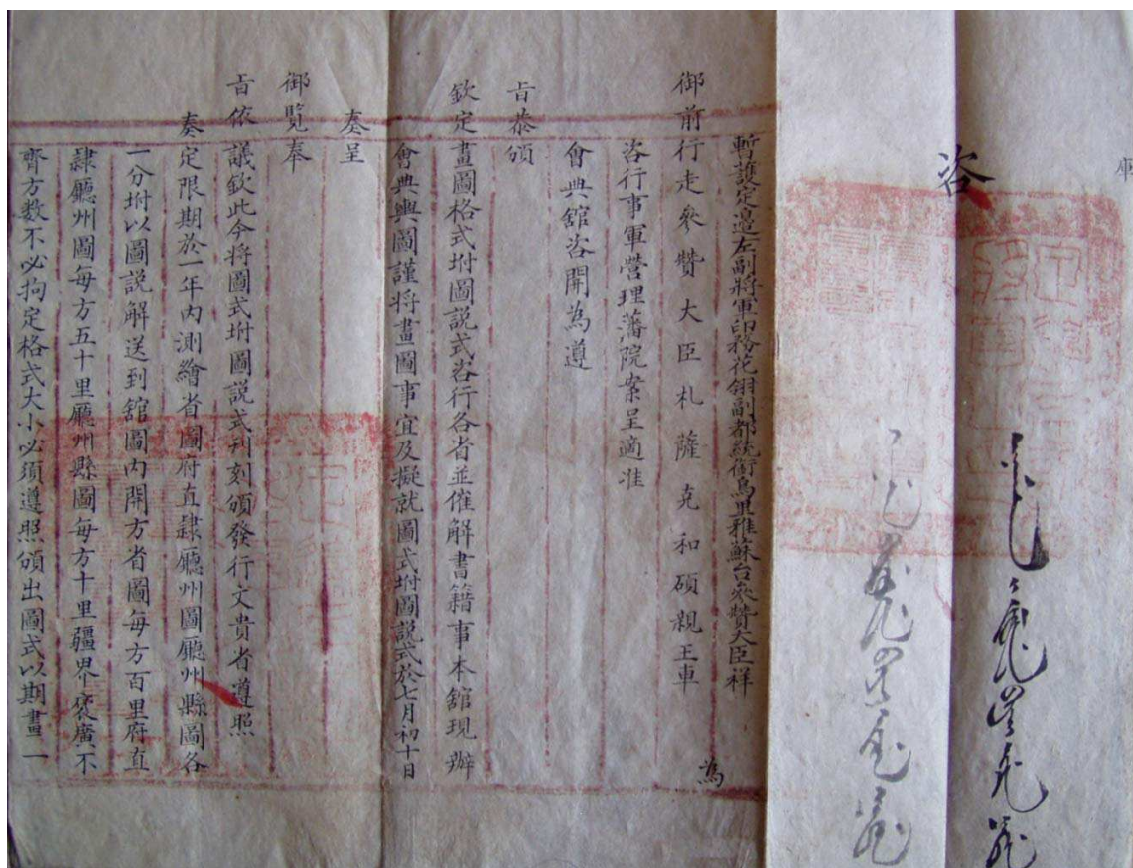 咨
暫護定邉左副將軍印務花翎副都統銜烏里雅蘇台叅贊大臣祥
御前行走叅贊大臣札薩克和碩親王車
為
咨行事軍營理藩院案呈適准
會典舘咨開為遵
旨恭頒
欽定畫圖格式坿圖説式咨行各省並催解書籍事本舘現辦
會典輿圖謹將畫圖事宜及擬就圖式坿圖説式於七月初十日
奏呈
御覽奉
旨依議欽此今將圖式坿圖説式刋刻頒發行文貴省遵照
奏定限期於一年内測繪省圖府直隷廳州圖廳州縣圖各
一分坿以圖説解送到舘圖内開方省圖每方百里府直
隷廳州圖每方五十里廳州縣圖每方十里疆界袤廣不
齊方数不必拘定格式大小必須遵照頒出圖式以期畫一